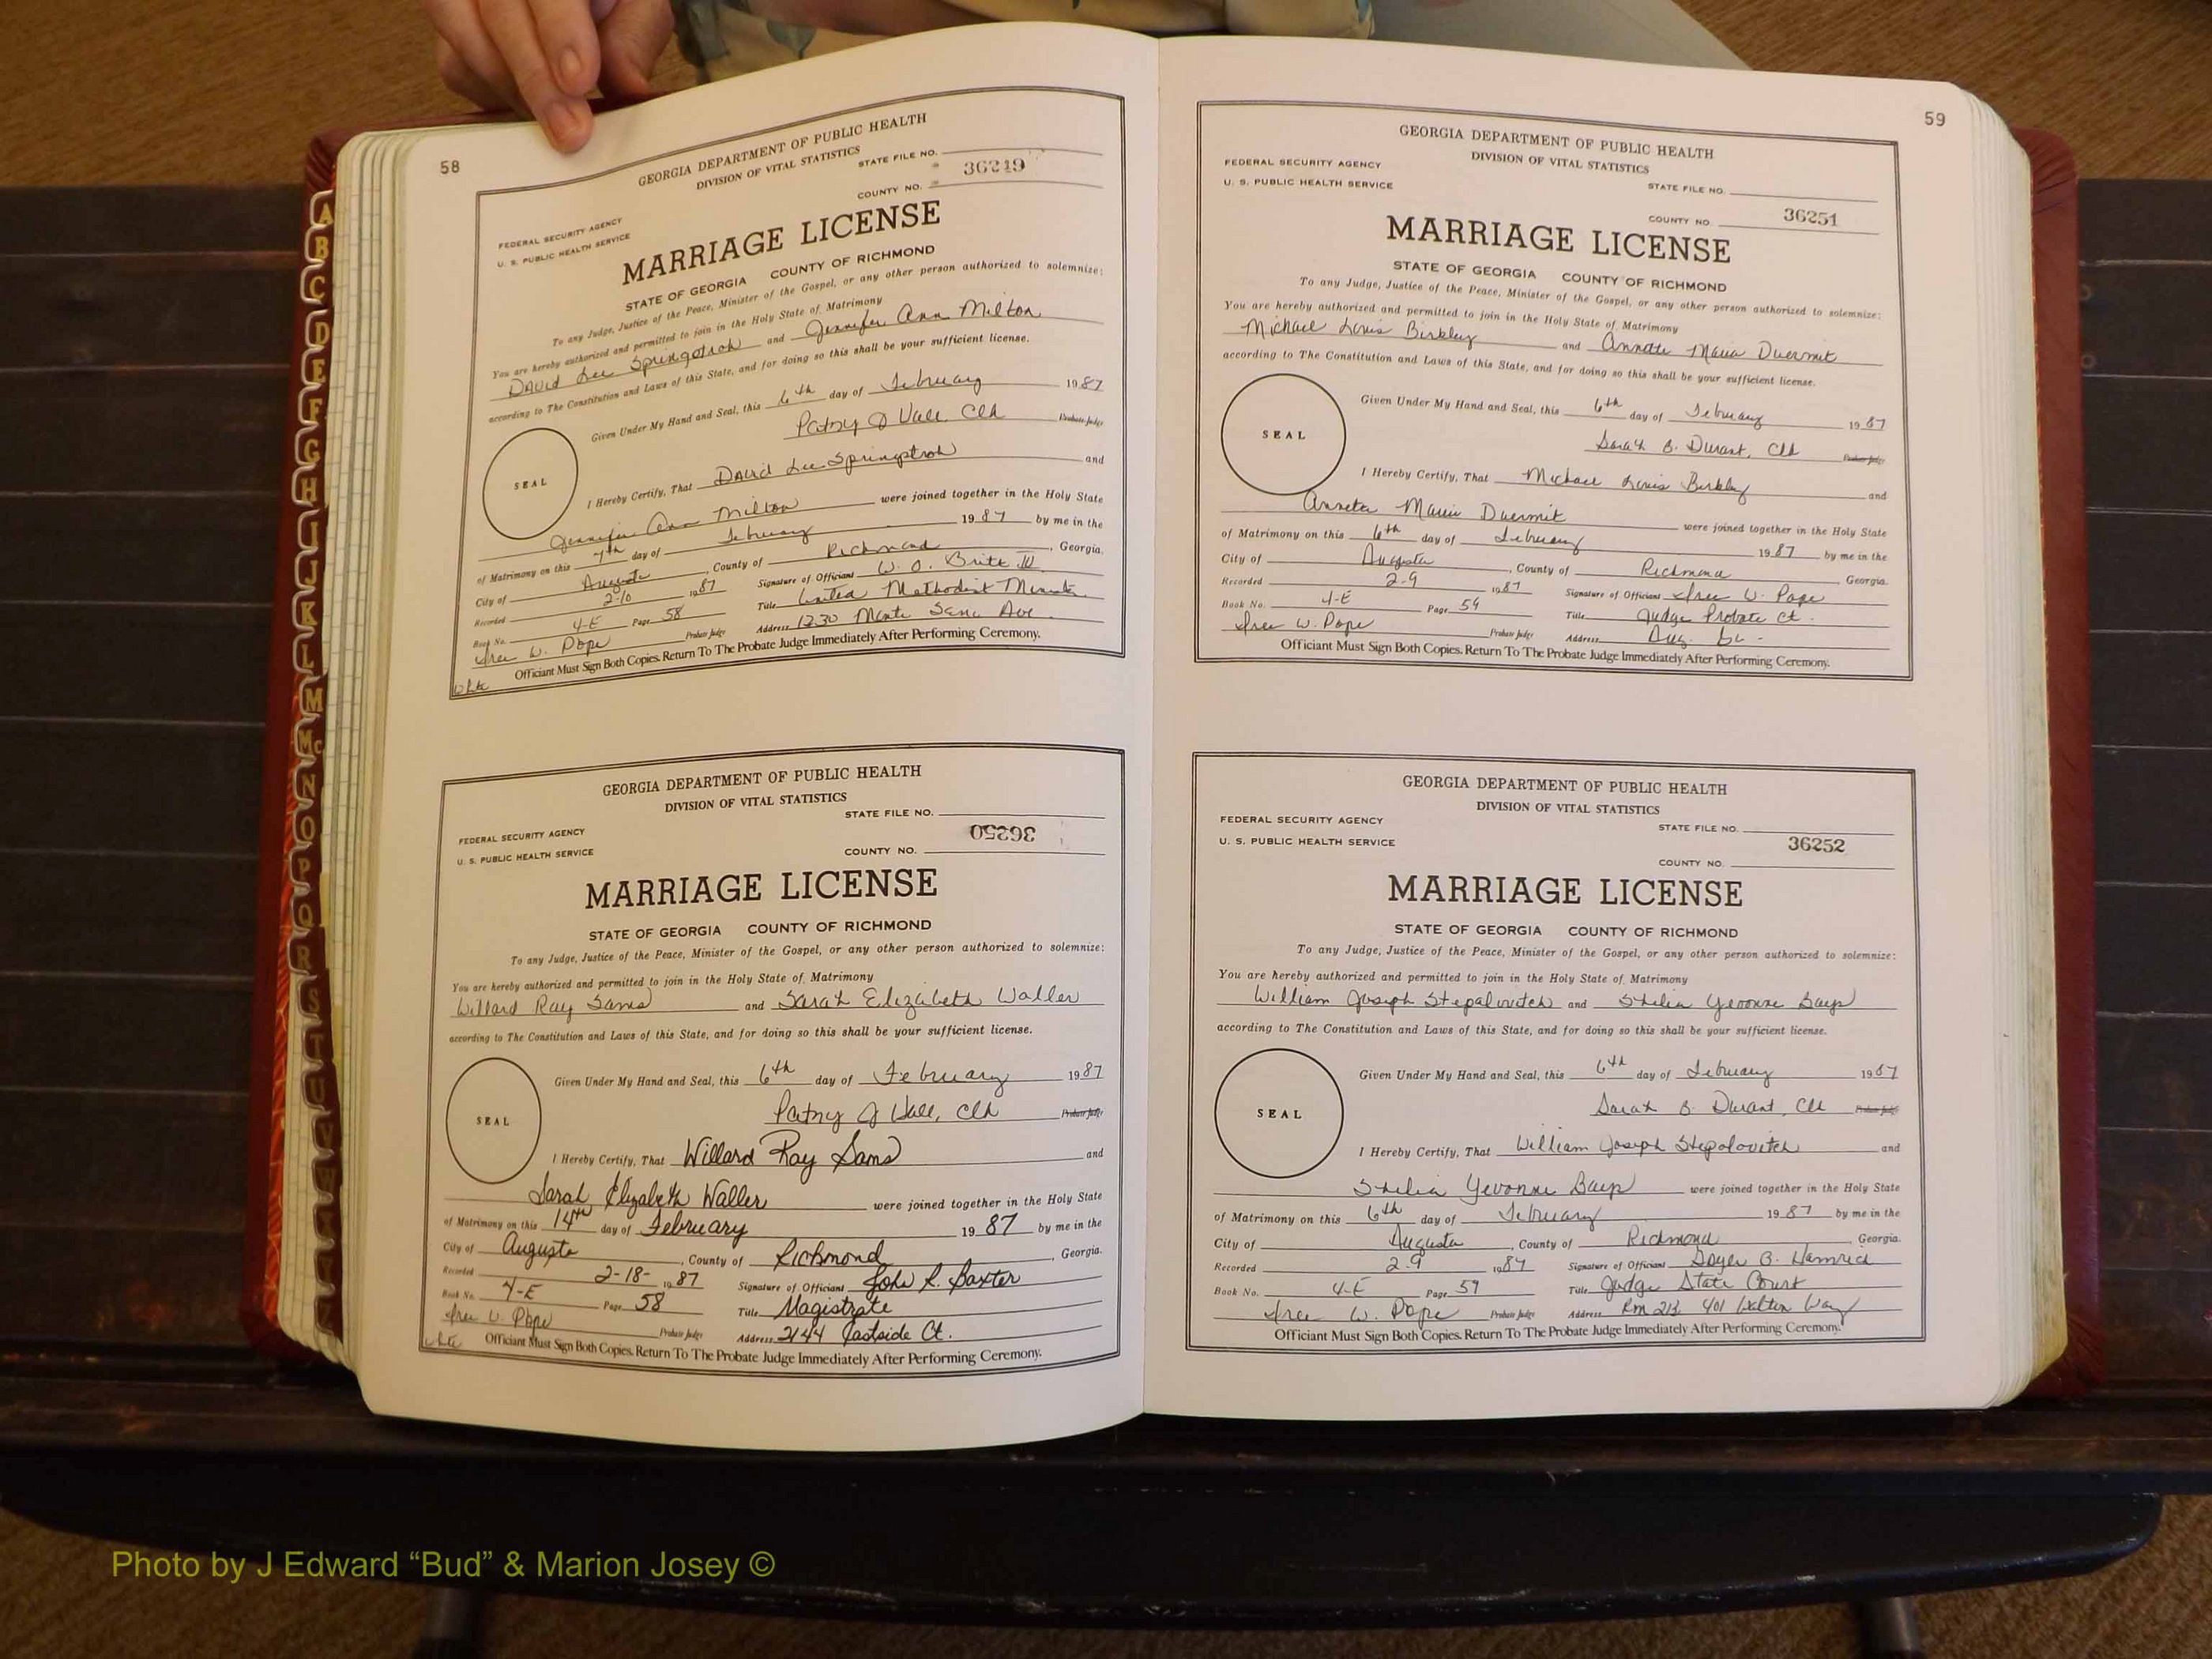 58
GEORGIA DEPARTMENT OF PUBLIC HEALTH
DIVISION OF VITAL STATISTICS
STATE FILE NO.
36249
COUNTY NO.
FEDERAL SECURITY AGENCY
U. S. PUBLIC HEALTH SERVICE
MARRIAGE LICENSE
STATE OF GEORGIA COUNTY OF RICHMOND
To any Judge, Justice of the Peace, Minister of the Gospel, or any other person authorized to solemnize:
You are hereby authorized and permitted to join in the Holy State of Matrimony
David Lee Springstroh and Jennifer Ann Milton
according to The Constitution and Laws of this State, and for doing so this shall be your sufficient license.
Given Under My Hand and Seal, this 6th day of February 1987
Patsy J Vall Clk Probate Judge
SEAL
I Hereby Certify, That David Lee Springstroh and
Jennifer Ann Milton were joined together in the Holy State
of Matrimony on this 7th day of February 1987 by me in the
City of Augusta, County of Richmond, Georgia.
Recorded 2-10 1987 Signature of Officiant W. O. Brite III
Book No. 4-E Page 58 Title United Methodist Minister
Probate Judge Address 1230 Monte Sano Ave
W. Pope
Officiant Must Sign Both Copies. Return To The Probate Judge Immediately After Performing Ceremony.
white
GEORGIA DEPARTMENT OF PUBLIC HEALTH
DIVISION OF VITAL STATISTICS
STATE FILE NO.
36250
FEDERAL SECURITY AGENCY
U. S. PUBLIC HEALTH SERVICE
COUNTY NO.
MARRIAGE LICENSE
STATE OF GEORGIA COUNTY OF RICHMOND
To any Judge, Justice of the Peace, Minister of the Gospel, or any other person authorized to solemnize:
You are hereby authorized and permitted to join in the Holy State of Matrimony
Willard Ray Sams and Sarah Elizabeth Waller
according to The Constitution and Laws of this State, and for doing so this shall be your sufficient license.
Given Under My Hand and Seal, this 6th day of February 1987
Patsy J Vall, Clk Probate Judge
SEAL
I Hereby Certify, That Willard Ray Sams and
Sarah Elizabeth Waller were joined together in the Holy State
of Matrimony on this 14th day of February 1987 by me in the
City of Augusta, County of Richmond, Georgia.
Recorded 2-18- 1987 Signature of Officiant John R. Baxter
Book No. 4-E Page 58 Title Magistrate
W. Pope Probate Judge Address 2144 Eastside Ct.
Officiant Must Sign Both Copies. Return To The Probate Judge Immediately After Performing Ceremony.
white
59
GEORGIA DEPARTMENT OF PUBLIC HEALTH
DIVISION OF VITAL STATISTICS
FEDERAL SECURITY AGENCY
U. S. PUBLIC HEALTH SERVICE
STATE FILE NO.
COUNTY NO. 36251
MARRIAGE LICENSE
STATE OF GEORGIA COUNTY OF RICHMOND
To any Judge, Justice of the Peace, Minister of the Gospel, or any other person authorized to solemnize:
You are hereby authorized and permitted to join in the Holy State of Matrimony
Michael Louis Birkley and Annette Maria Duermit
according to The Constitution and Laws of this State, and for doing so this shall be your sufficient license.
Given Under My Hand and Seal, this 6th day of February 1987
Sarah B. Durant, Clk Probate Judge
SEAL
I Hereby Certify, That Michael Louis Birkley and
Duermit were joined together in the Holy State
of Matrimony on this 6th day of February 1987 by me in the
City of Augusta, County of Richmond, Georgia.
Recorded 2-9 1987 Signature of Officiant W. Pope
Book No. 4-E Page 59 Title Judge Probate Ct.
W. Pope Probate Judge Address Aug. Ga.
Officiant Must Sign Both Copies. Return To The Probate Judge Immediately After Performing Ceremony.
GEORGIA DEPARTMENT OF PUBLIC HEALTH
DIVISION OF VITAL STATISTICS
FEDERAL SECURITY AGENCY
STATE FILE NO.
U. S. PUBLIC HEALTH SERVICE
36252
COUNTY NO.
MARRIAGE LICENSE
STATE OF GEORGIA COUNTY OF RICHMOND
To any Judge, Justice of the Peace, Minister of the Gospel, or any other person authorized to solemnize:
You are hereby authorized and permitted to join in the Holy State of Matrimony
William Joseph Stepalovitch and Shelia Yevonne
according to The Constitution and Laws of this State, and for doing so this shall be your sufficient license.
Given Under My Hand and Seal, this 6th day of February 1987
Sarah B. Durant, Clk Probate Judge
SEAL
I Hereby Certify, That William Joseph Stepalovitch and
Shelia Yevonne were joined together in the Holy State
of Matrimony on this 6th day of February 1987 by me in the
City of Augusta, County of Richmond, Georgia.
Recorded 2-9 1987 Signature of Officiant B. Hamrick
Book No. 4-E Page 59 Title Judge State Court
W. Pope Probate Judge Address Rm 213 401 Walton Way
Officiant Must Sign Both Copies. Return To The Probate Judge Immediately After Performing Ceremony.
A
B
C
D
E
F
G
H
I
J
K
L
M
Mc
N
O
P
Q
R
S
T
U
V
Photo by J Edward “Bud” & Marion Josey ©